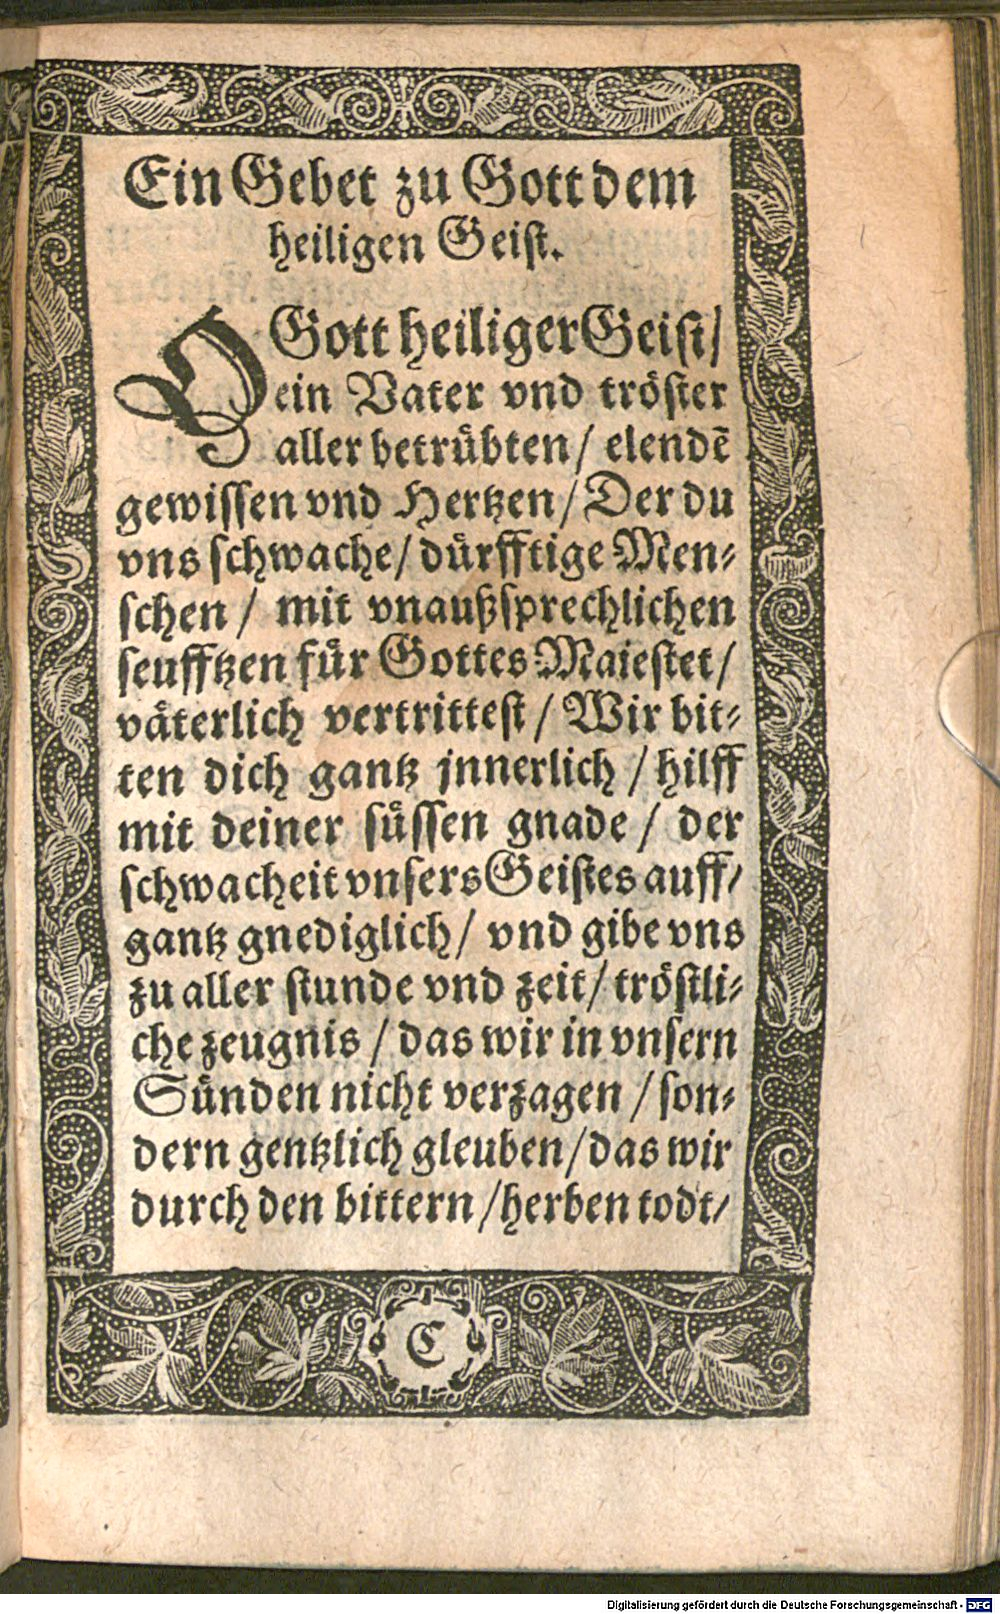 Ein Gebet zu Gott dem
heiligen Geist.
O Gott heiliger Geist/
ein Vater vnd tröster
aller betrübten/ elendē
gewissen vnd Hertzen/ Der du
vns schwache/ dürfftige Men⸗
schen/ mit vnaußsprechlichen
seufftzen für Gottes Maiestet/
väterlich vertrittest/ Wir bit⸗
ten dich gantz jnnerlich/ hilff
mit deiner süssen gnade/ der
schwacheit vnsers Geistes auff/
gantz gnediglich/ vnd gibe vns
zu aller stunde vnd zeit/ tröstli⸗
che zeugnis/ das wir in vnsern
Sünden nicht verzagen/ son⸗
dern gentzlich gleuben/ das wir
durch den bittern/ herben todt/
C
Digitalisierung gefördert durch die Deutsche Forschungsgemeinschaft - DFG